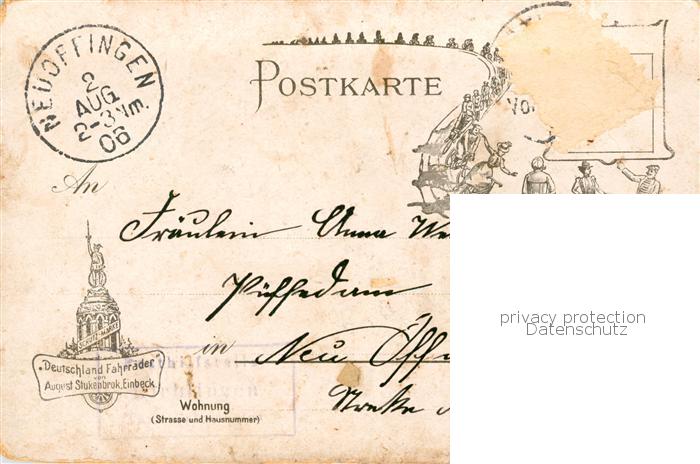 NEUOFFINGEN
2
AUG
2-3 Vm.
06
POSTKARTE
An
Fräulein Anna We
privacy protection
Datenschutz
in Neu Öff
SCHUTZ-MARKE
„Deutschland Fahrräder“
von
August Stukenbrok, Einbeck
Wohnung
(Strasse und Hausnummer)